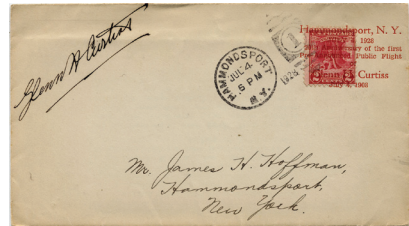 Glenn H Curtiss
HAMMONDSPORT
JUL 4
5 PM
N.Y.
1928
Hammondsport, N. Y.
1928
Anniversary of the first
Public Flight
Glenn Curtiss
July 4, 1908
Mr. James H. Hoffman,
Hammondsport,
New York.